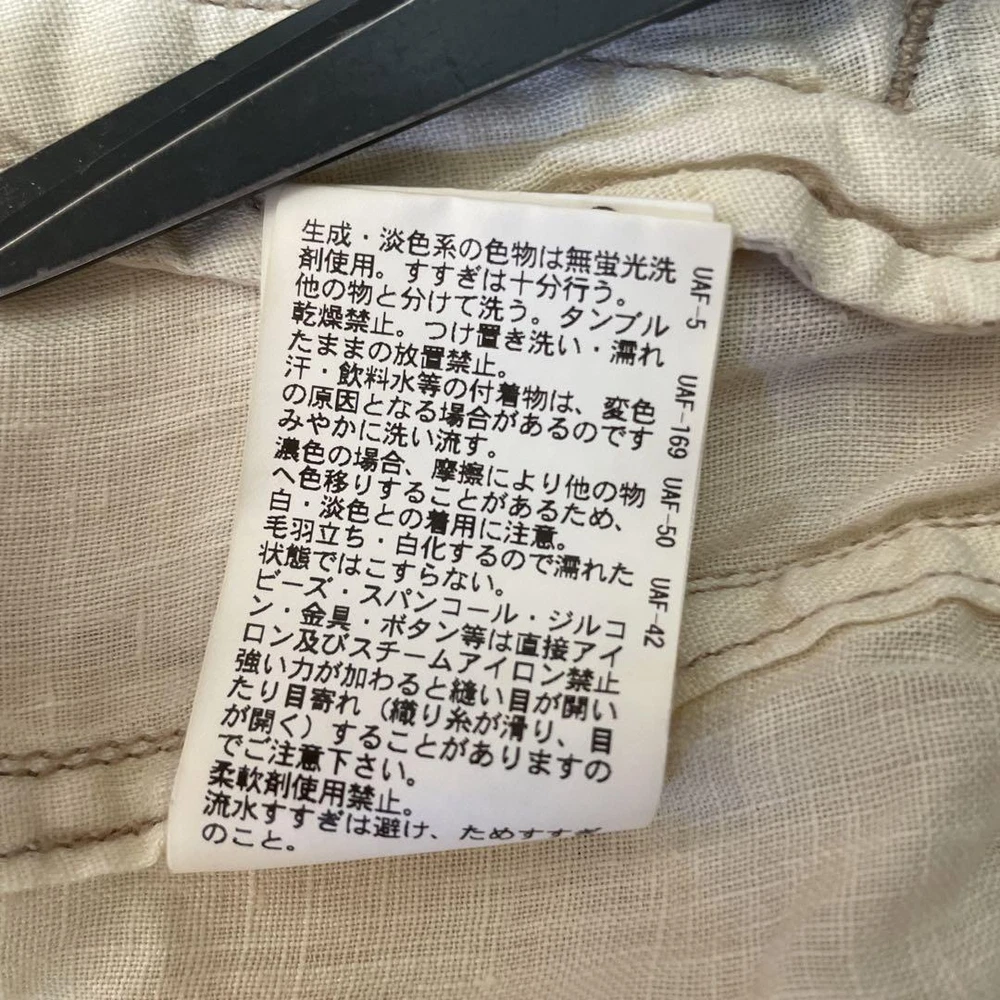 生成・淡色系の色物は無蛍光洗
剤使用。すすぎは十分行う。
他の物と分けて洗う。タンブル
乾燥禁止。つけ置き洗い・濡れ
たままの放置禁止。
汗・飲料水等の付着物は、変色
の原因となる場合があるのです
みやかに洗い流す。
濃色の場合、摩擦により他の物
へ色移りすることがあるため、
白・淡色との着用に注意。
毛羽立ち・白化するので濡れた
状態ではこすらない。
ビーズ・スパンコール・ジルコ
ン・金具・ボタン等は直接アイ
ロン及びスチームアイロン禁止
強い力が加わると縫い目が開い
たり目寄れ（織り糸が滑り、目
が開く）することがありますの
でご注意下さい。
柔軟剤使用禁止。
流水すすぎは避け、ためすすぎ
のこと。
UAF-5 UAF-169 UAF-50 UAF-42